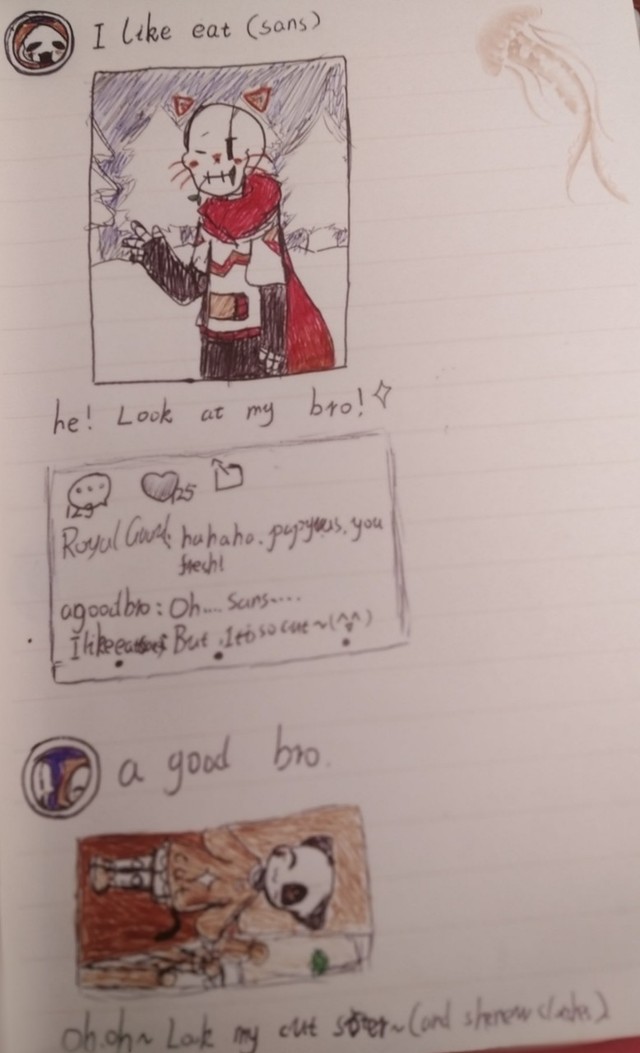 I like eat (sans)
he! Look at my bro!
123
125
Royal Guard: hahaha. papyrus. you
frech!
a good bro: Oh.... Sans.....
I like eat But It is so cut~(^v^)
a good bro.
Oh.oh~ Look my cut sister~ (and she new clothe)